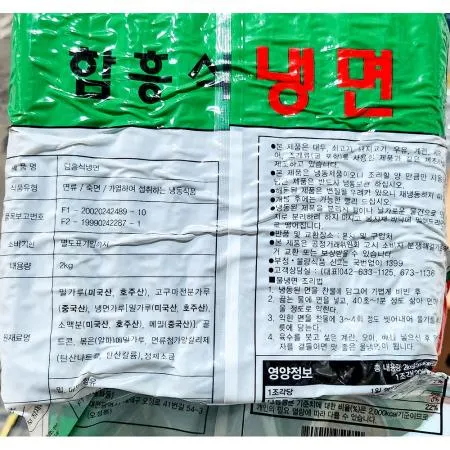 함흥식냉면
제품명 함흥식냉면
식품유형 면류 / 숙면 / 가열하여 섭취하는 냉동식품
품목보고번호 F1 - 20020242489 - 10
F2 - 19990242287 - 1
소비기한 별도표기일까지
내용량 2kg
원재료명 밀가루(미국산, 호주산), 고구마전분가루
(중국산), 냉면가루[밀가루(미국산, 호주산),
소맥분(미국산, 호주산), 메밀(중국산)], 골
드콘, 볶은(알파)메밀가루, 면류첨가알칼리제
(탄산나트륨, 탄산칼륨), 정제소금
41번길 54-3
•본 제품은 대두, 쇠고기, 돼지고기, 우유, 계란,
제조하고 있습니다.
•본 제품은 냉동제품이오니 조리할 양 만큼만
제품은 반드시 냉동보관 하십시오.
•해동된 제품은 변질될 우려가 있으니 재냉동하지
•개봉 후에는 가능한 빨리 드십시오.
•반품 및 교환장소 : 본사 및 구입처
•본 제품은 공정거래위원회 고시 소비자 분쟁해결
거 교환 또는 보상받을 수 있습니다.
•부정 • 불량식품 신고는 국번없이 1399
•고객상담실 : (대표)042-633-1125, 673-1136
■물냉면 조리법
1. 냉동된 면을 찬물에 담그어 가볍게 비빈 후
2. 끓는 물에 면을 넣고, 40초~1분 정도 삶아
을 정도로 익힌다.
3. 익힌 면을 찬물에 3~4회 정도 씻어내어 물기를
릇에 담는다.
4. 육수를 붓고 삶은 계란, 오이, 배
자를 곁들이면 맛 좋은 물냉면이 됩니다.
영양정보
총 내용량 2kg
1조각당
22%
기준치에 대한 비율(%)은 2,000kcal 기준이므로
개인의 필요 열량에 따라 다를 수 있습니다.